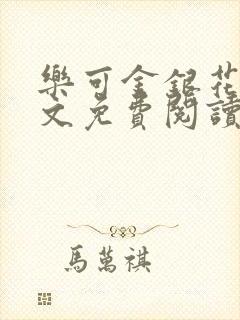 樂可金銀花
文免費閱讀
馬萬祺